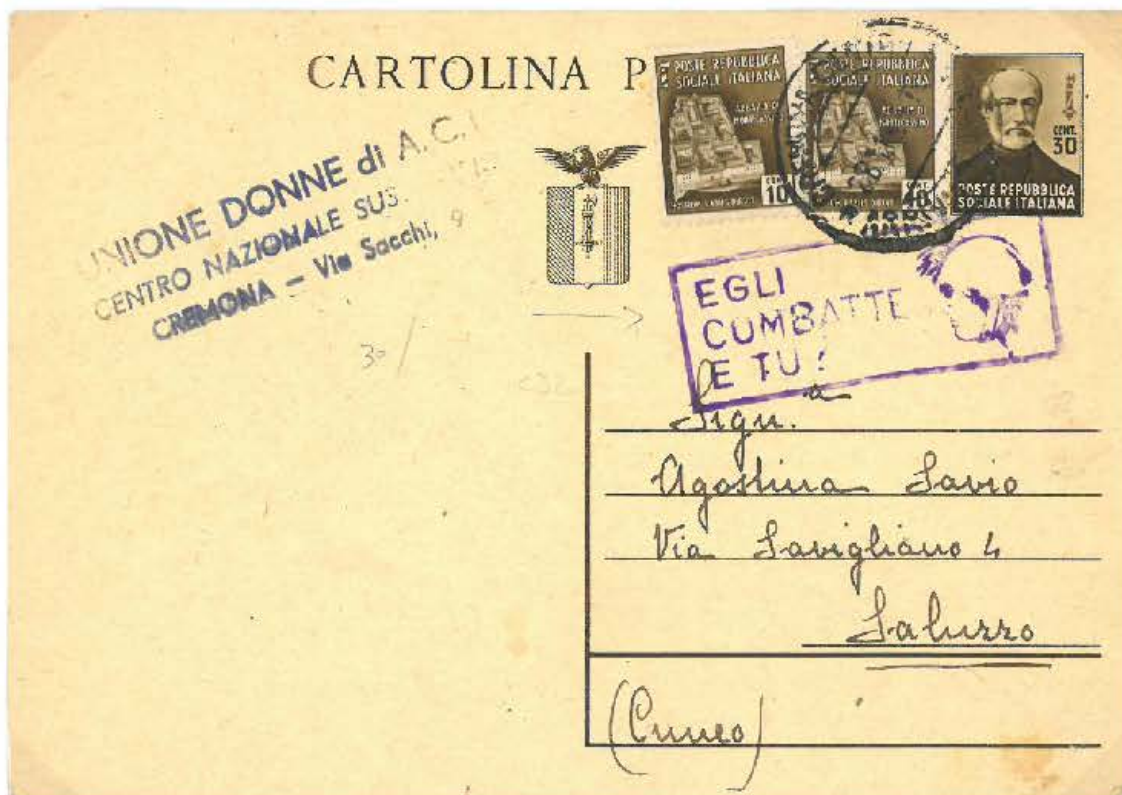 CARTOLINA P
POSTE REPUBBLICA
SOCIALE ITALIANA
CENT.
10
POSTE REPUBBLICA
SOCIALE ITALIANA
CENT.
30
POSTE REPUBBLICA
SOCIALE ITALIANA
UNIONE DONNE di A.C.I
CENTRO NAZIONALE SUS.
CREMONA - Via Sacchi, 9
30/
EGLI
COMBATTE
E TU?
Sign.a
Agostina Savio
Via Savigliano 4
Saluzzo
(Cuneo)